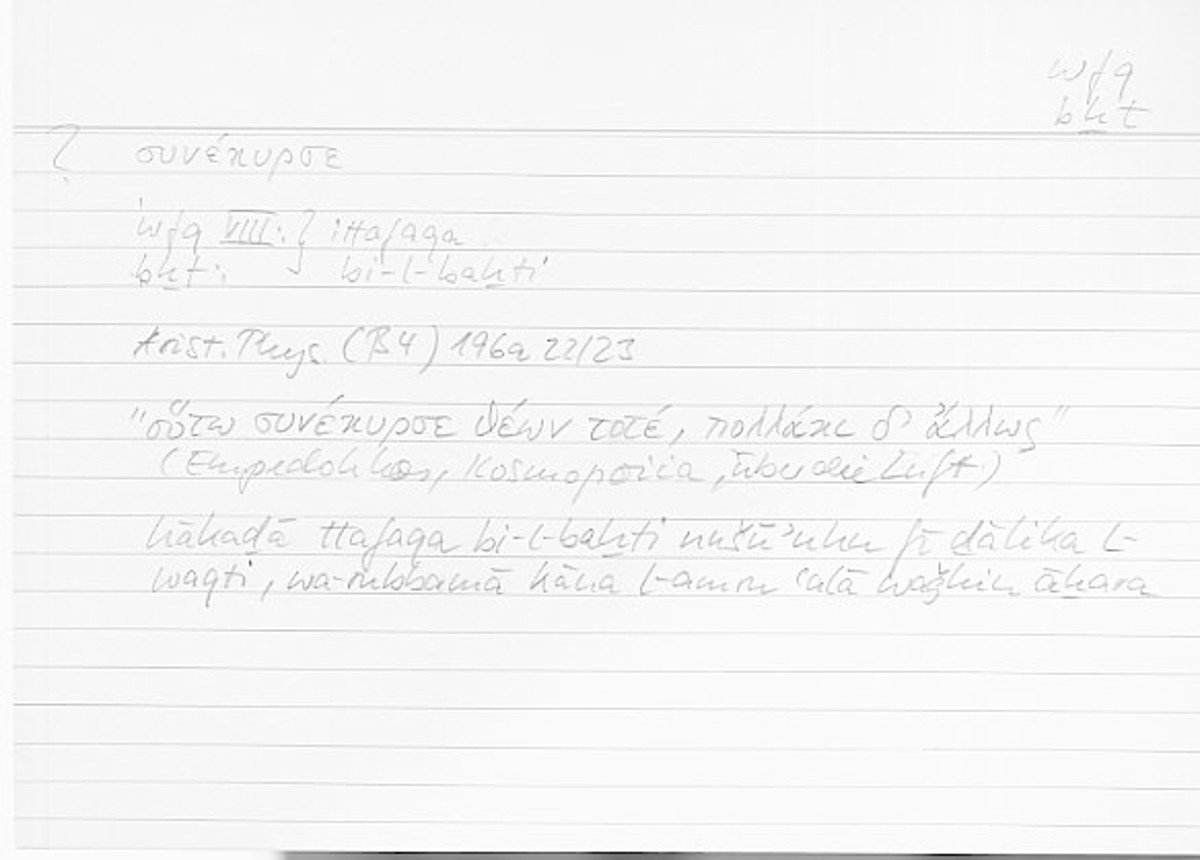 wfq
bḫt
? συνέκυρσε
wfq VIII: } ittafaqa
bḫt: bi-l-baḫti
Arist. Phys. (B4) 196a 22/23
"οὕτω συνέκυρσε θέων τοτέ, πολλάκι δ' ἄλλως"
(Empedokles, Kosmopoiia, über die Luft)
hākaḏā ttafaqa bi-l-baḫti nušūʾuhu fī ḏālika l-
waqti, wa-rubbamā kāna l-amru ʿalā waǧhin āḫara